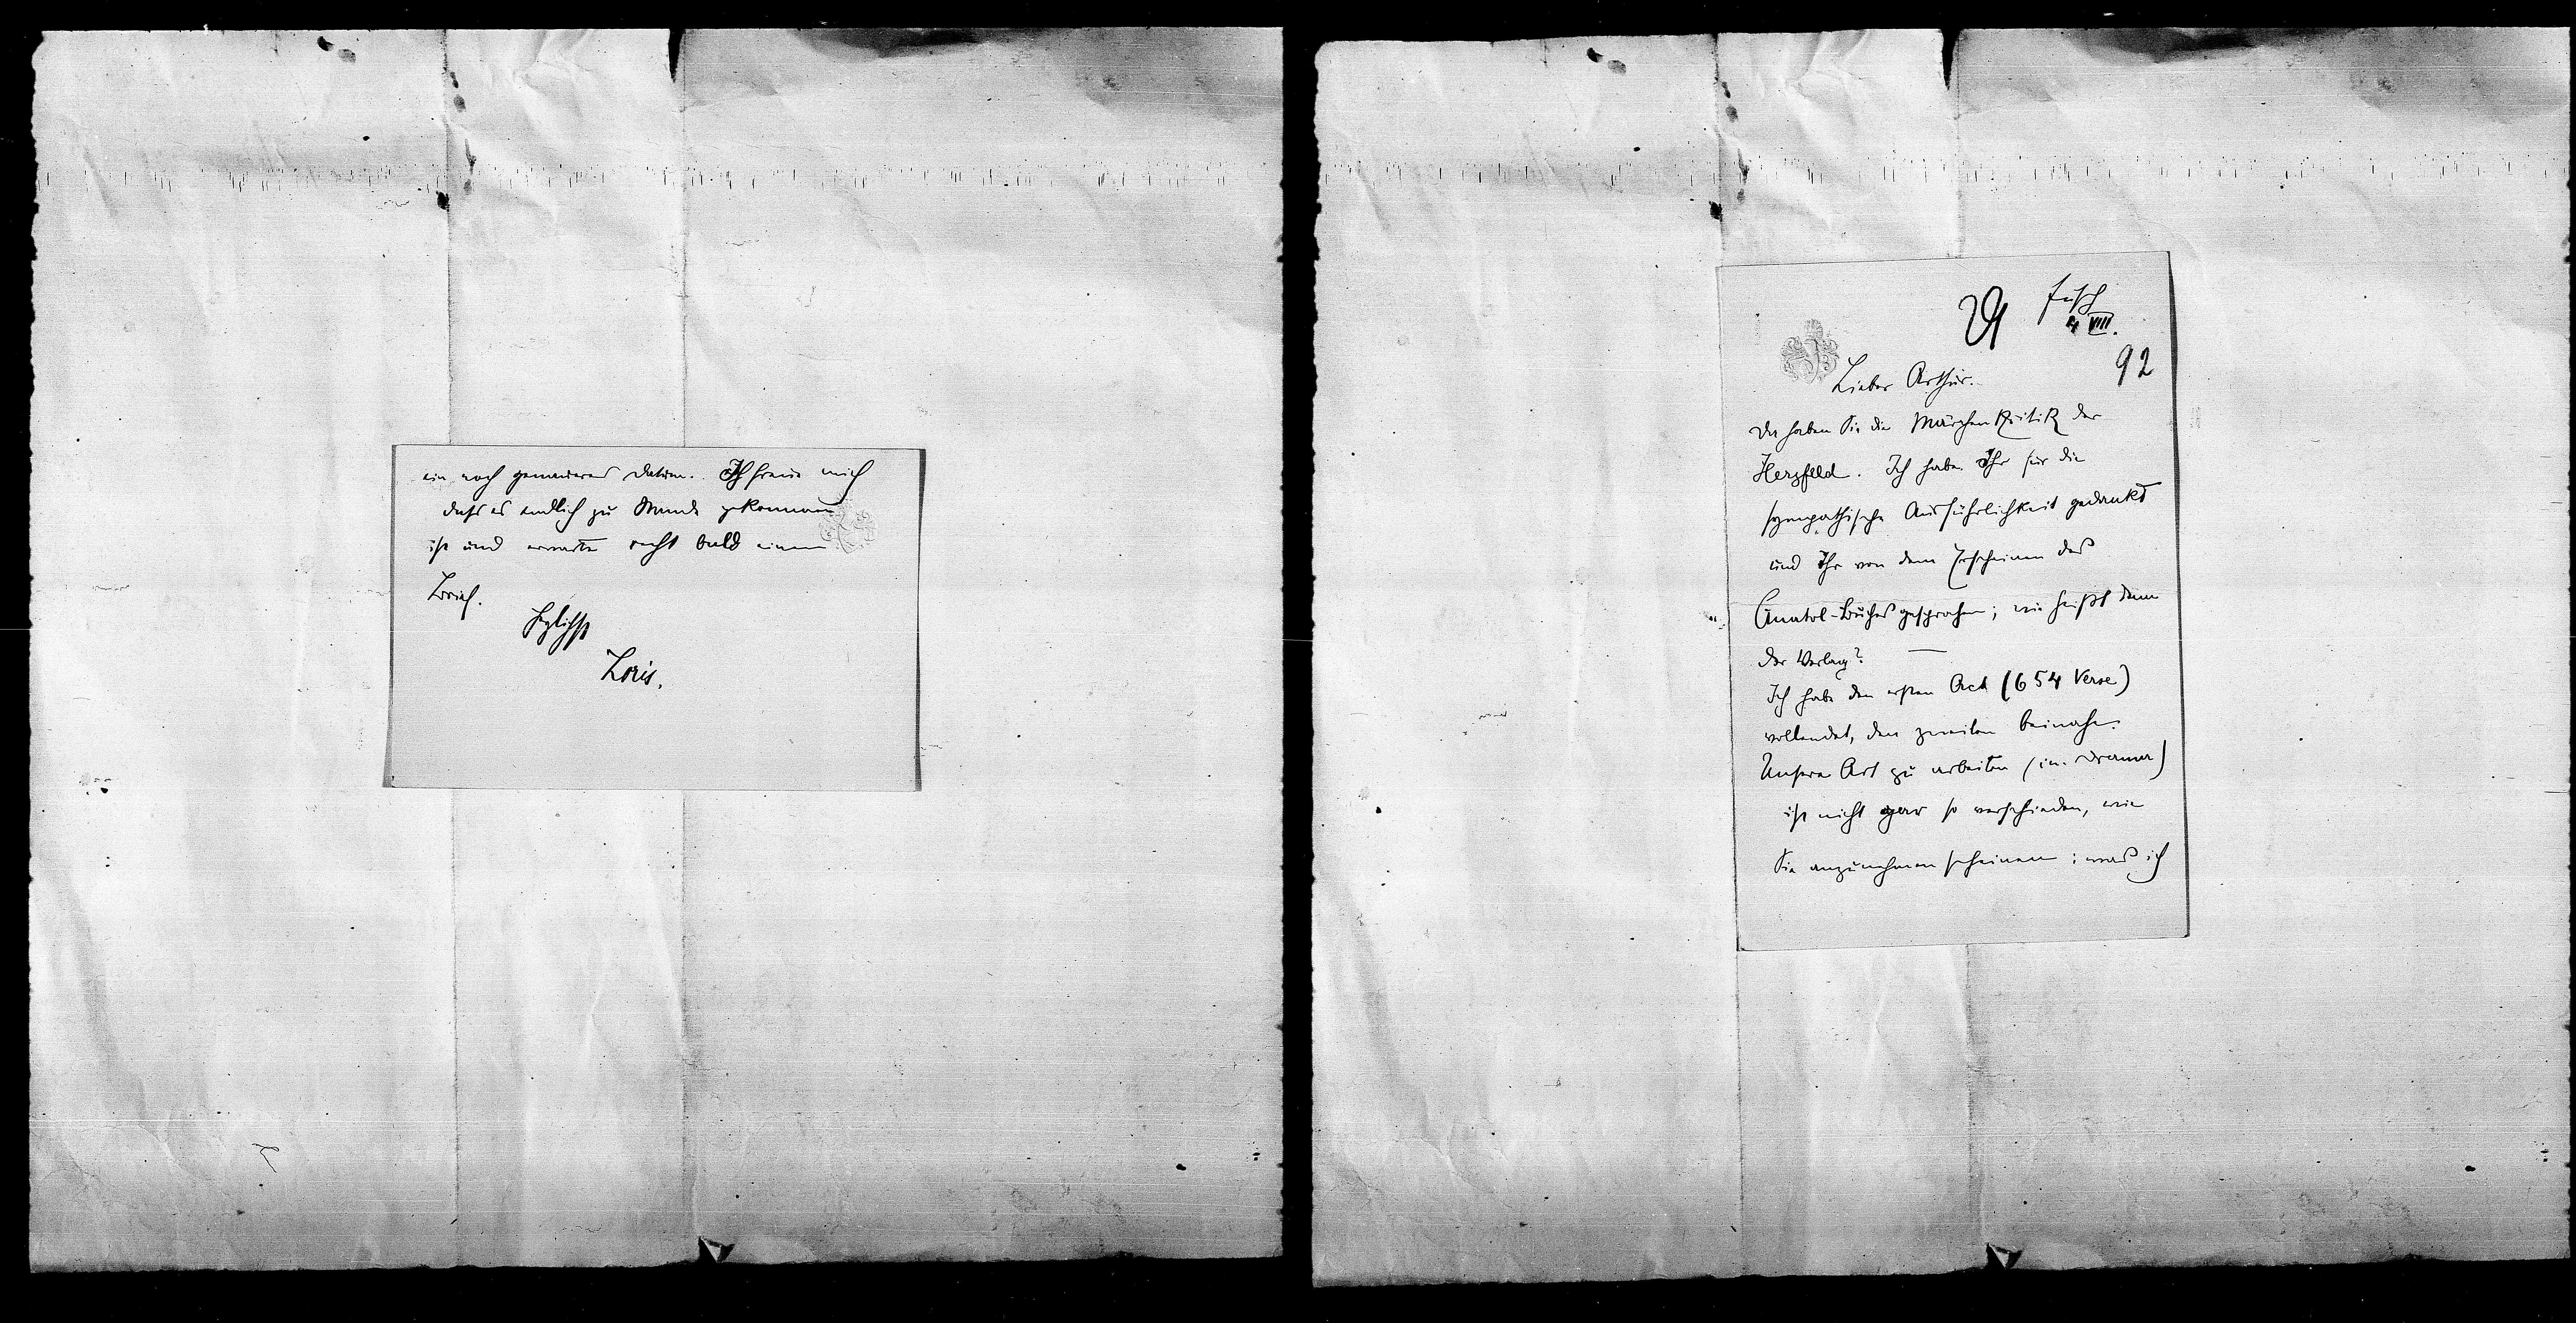 ein noch genaueres Datum. Ich freue mich
dass es endlich zu Stande gekommen
ist und erwarte recht bald einen
Brief.
Herzlichst
Loris.
29
Fusch
4 VIII.
92
Lieber Arthur.
Da haben Sie die Märchenkritik der
Herzfeld. Ich habe Ihr für die
sympathische Ausführlichkeit gedankt
und Ihr von dem Erscheinen des
Anatol-Buches gesprochen; wie heißt denn
der Verlag? —
Ich habe den ersten Act (654 Verse)
vollendet, den zweiten beinahe.
Unsere Art zu arbeiten (im Drama)
ist nicht gar so verschieden, wie
Sie anzunehmen scheinen; was ich